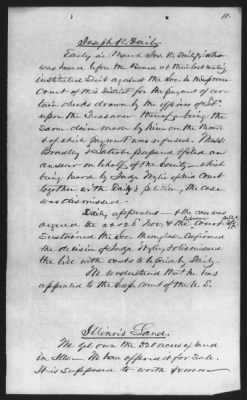 11.
Joseph R. Daily
Early in March Jos. R. Daily who
was heard before the Board at their last meeting
instituted Suit against the Soc. in the Supreme
Court of this District for the payment of cer-
tain checks drawn by the
upon the Treasurer thereof being the
same claim made by him on the
of which payment was refused. Mess.
Bradley & prepared & filed an
answer on behalf of the Society which
being heard by Judge Wylie of this Court
together with Daily's petition, the case
was dismissed.
Daily appealed & the case was
argued the 22 & 23 Nov. & the Supreme Court
Sustained the Soc. &
the decision of Judge Wylie, & dismissed
the bill with costs to be paid by Daily.
We understand that he has
appealed to the Sup. Court of the U.S.
Illinois Land.
We yet own the 320 acres of land
in Ills. We have offered it for sale.
It is supposed to worth